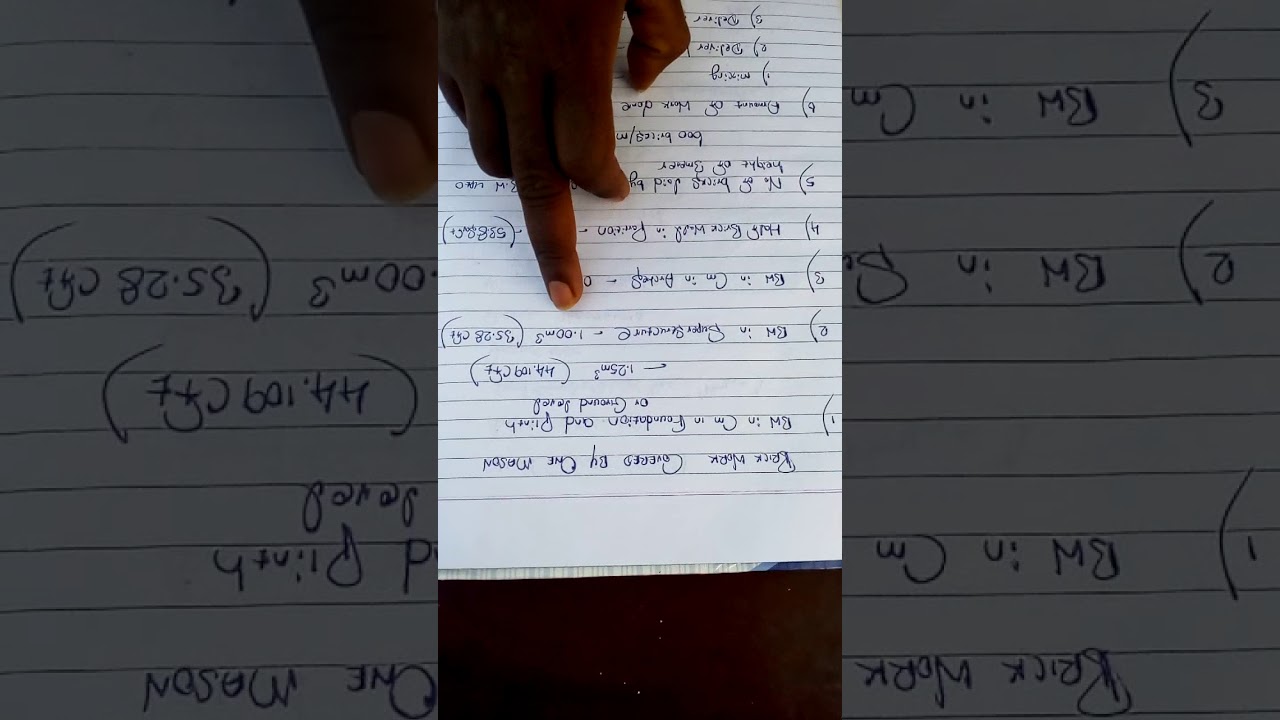 BRICK WORK COVERED BY ONE MASON
1) BW in Cm in Foundation and Plinth
Or Ground level
- 1.25m³ (44.109 Cft)
2) BW in Superstructure - 1.00m³ (35.28 Cft)
3) BW in Cm in Arches - 0
4) Half Brick Wall in Partition - - (
5) No of bricks laid by B.W UPTO
height of 3meter
600 bricks/m
6) Amount of Work done
1) mixing
2) Deliver
3) Deliver